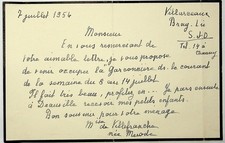 7 juillet 1954
Villarceaux
Bray - Lû
S & O
Tel. 19 à
Monsieur
En vous remerciant de
votre aimable lettre, je vous propose
de vous occuper la "Garçonnière" le courant
de la semaine du 8 au 14 juillet
Il fait très beau ; profitez en... Je pars ensuite
à Deauville recevoir mes petits enfants.
Bon souvenir pour votre ménage
Mise de Villefranche
née Merode